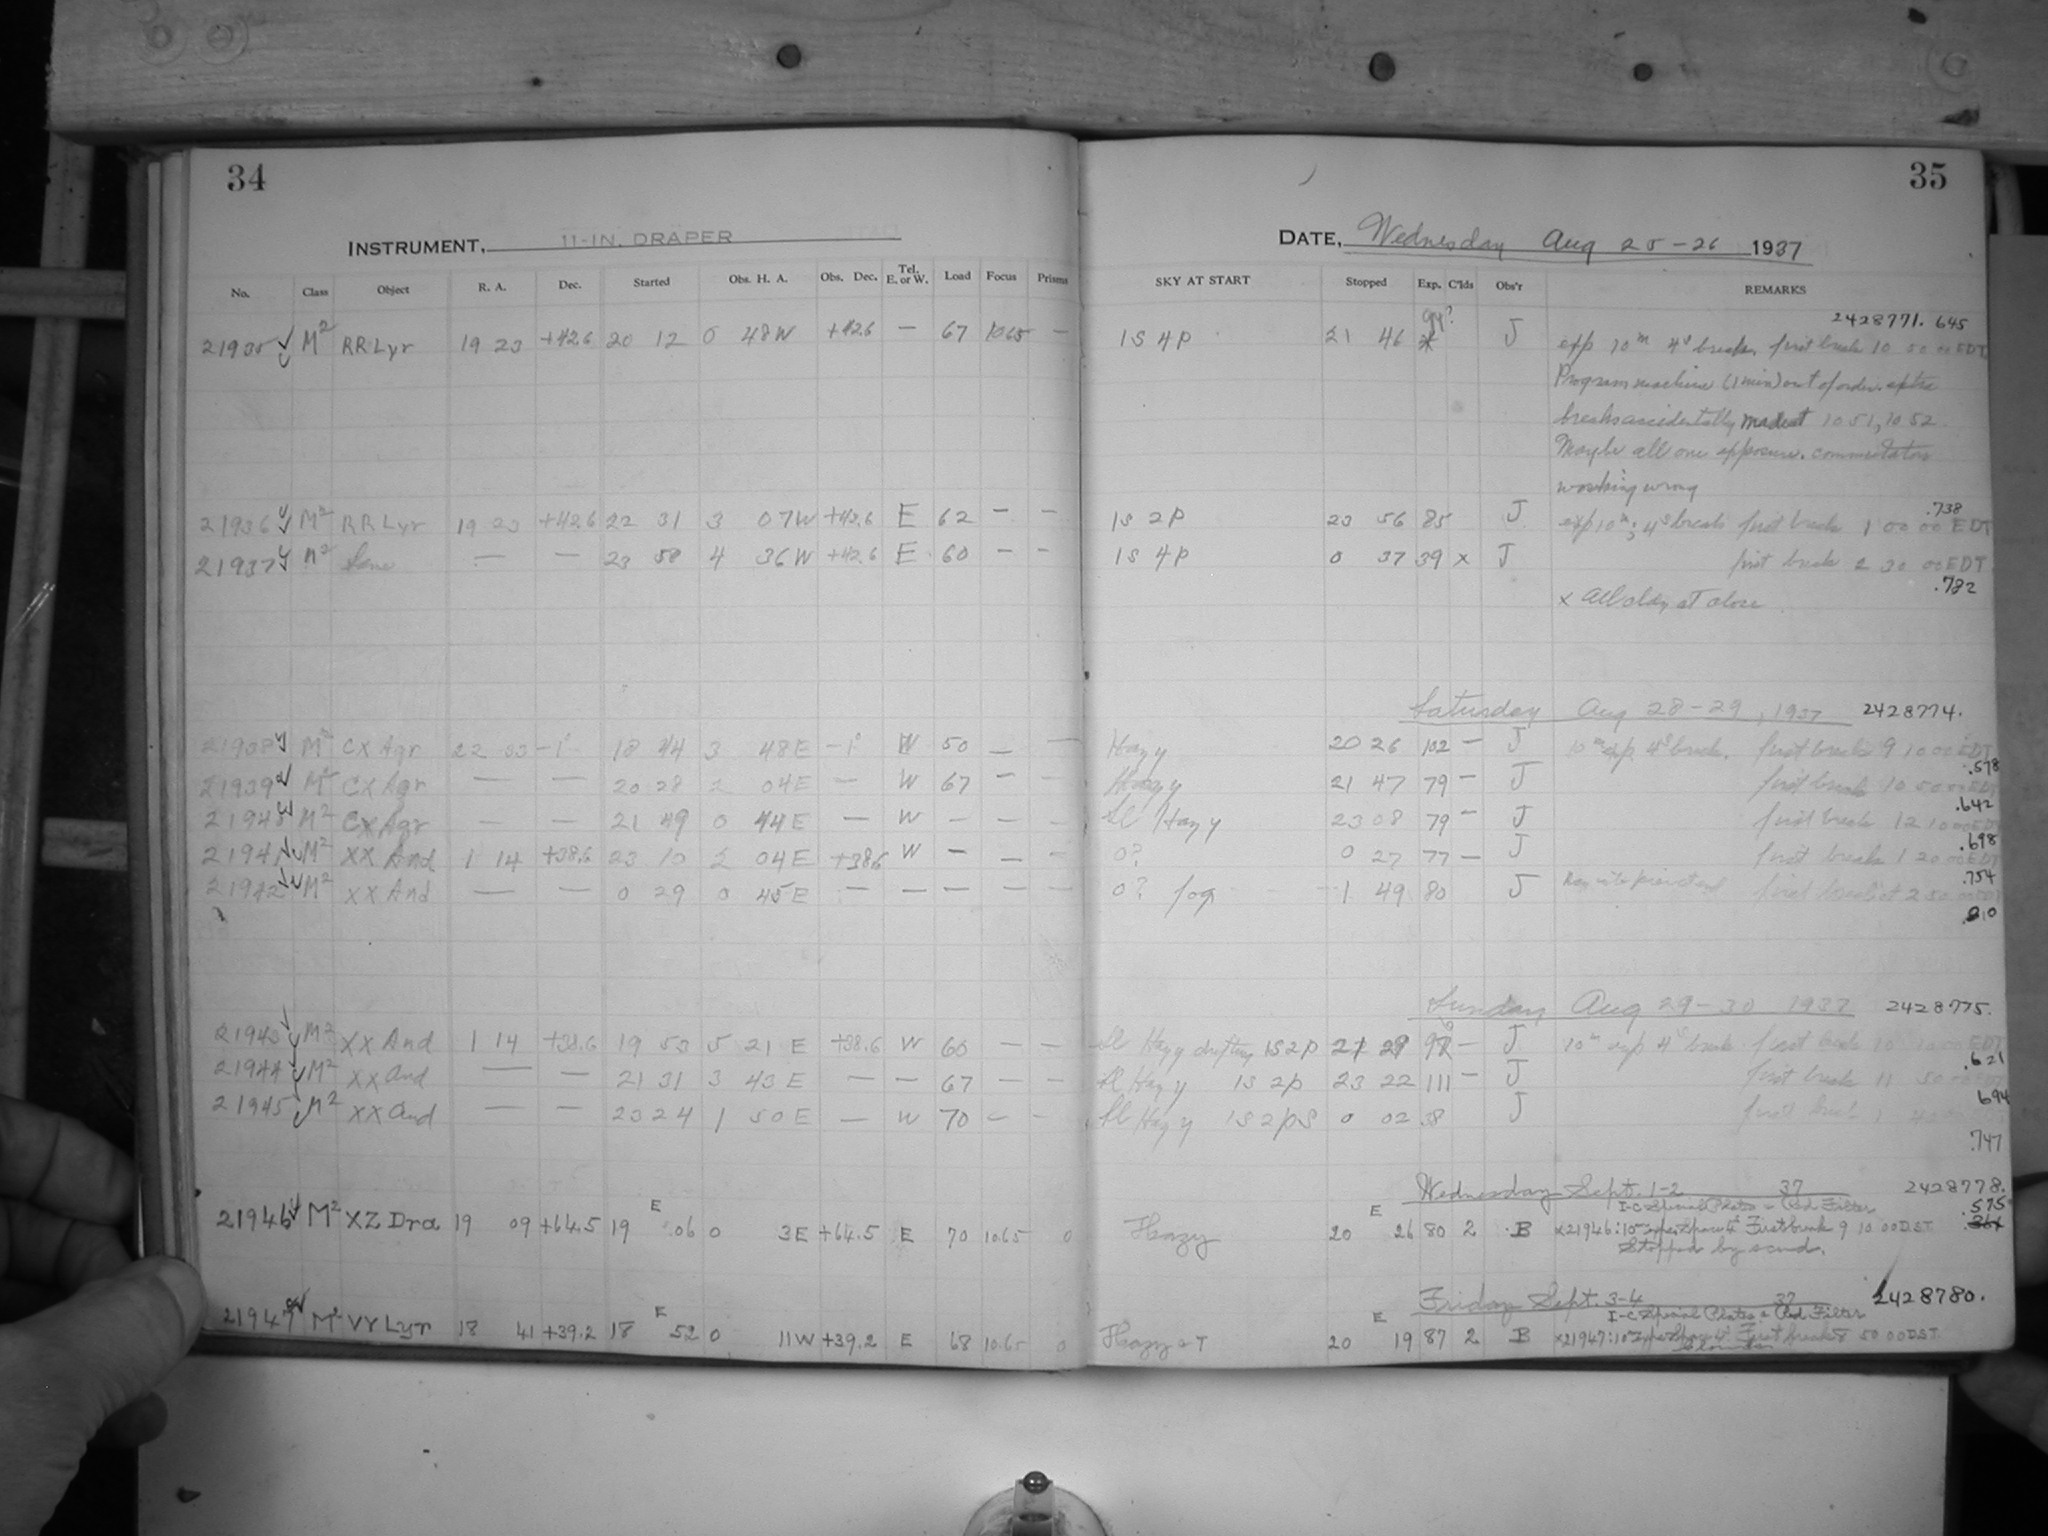 34
INSTRUMENT, 11-IN. DRAPER
No. Class Object R. A. Dec. Started Obs. H. A. Obs. Dec. Tel. E. or W. Load Focus Prisms
21935 M2 RR Lyr 19 23 +42.6 20 12 0 48W +42.6 — 67 1065 —
21936 M2 RR Lyr 19 23 +42.6 22 31 3 07W +42.6 E 62 — —
21937 M2 Same — — 23 58 4 36W +42.6 E 60 — —
21938 M2 CX Aqr 22 33 -1° 18 44 3 48E -1° W 50 — —
21939 M2 CX Aqr — — 20 28 2 04E — W 67 — —
21940 M2 CX Aqr — — 21 49 0 44E — W — — —
21941 M2 XX And 1 14 +38.6 23 10 2 04E +38.6 W — — —
21942 M2 XX And — — 0 29 0 45E — — — — —
21943 M2 XX And 1 14 +38.6 19 53 5 21 E +38.6 W 60 — —
21944 M2 XX And — — 21 31 3 43 E — — 67 — —
21945 M2 XX And — — 23 24 1 50 E — W 70 — —
21946 M2 XZ Dra 19 09 +64.5 19 E 06 0 3E +64.5 E 70 10.65 0
21947 M2 VY Lyr 18 41 +39.2 18 E 52 0 11W +39.2 E 68 10.65 0
35
DATE, Wednesday Aug 25-26 1937
SKY AT START Stopped Exp. C'lds Obs'r REMARKS
2428771.645
1S 4P 21 46 94? J exp 10m 4s breaks. first break 10 50 00 EDT
Program machine (1 min) out of order. extra
breaks accidentally made at 10 51, 10 52.
Maybe all one exposure. commutators
working wrong
.738
1S 2P 23 56 85 J exp 10m; 4s break first break 1 00 00 EDT
1S 4P 0 37 39 x J first break 2 30 00 EDT
.782
x All cldy at close
Saturday Aug 28-29, 1937 2428774.
Hazy 20 26 102 — J 10m exp 4s break. first break 9 10 00 EDT
.578
Hazy 21 47 79 — J first break 10 50 00 EDT
.642
Sl Hazy 23 08 79 — J first break 12 10 00 EDT
.698
0? 0 27 77 — J first break 1 20 00 EDT
.754
0? fog 1 49 80 J first break at 2 50
.810
Sunday Aug 29-30 1937 2428775.
Sl Hazy drifting 1S2P 21 29 96 — J 10m exp 4s break first break 10 10 00 EDT
.621
Sl Hazy 1S 2P 23 22 111 — J first break 11 50 00 EDT
694
Sl Hazy 1S 2PS 0 02 38 J first break 1
.747
Wednesday Sept. 1-2 37 2428778.
I-C Special Plates & Red Filter .575
Hazy 20 E 26 80 2 B x21946: 10m 4s First break 9 10 00 DST
Stopped by scuds.
Friday Sept. 3-4 37 2428780.
I-C Special Plates & Red Filter
Hazy & T 20 E 19 87 2 B x21947: 10m 4s First break 8 50 00 DST